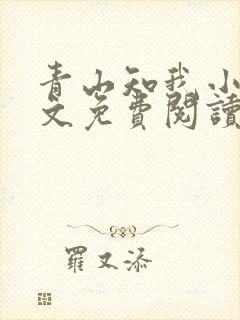 青山知我小
文免費閱讀
羅又添